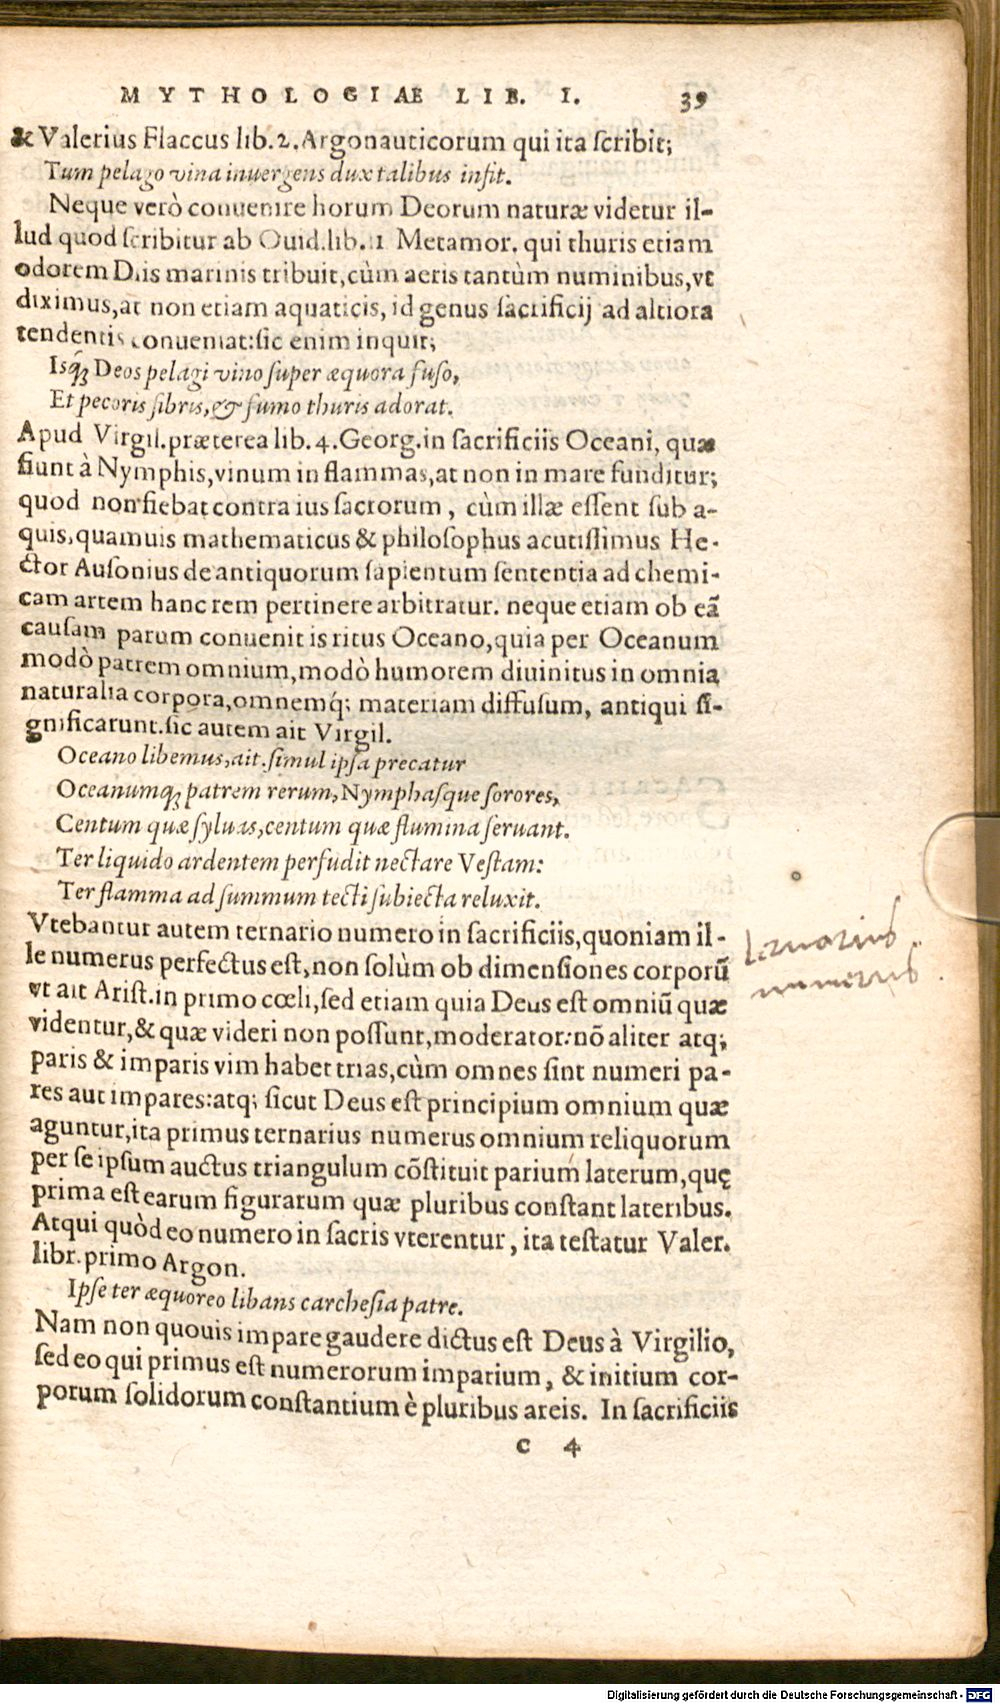 MYTHOLOGIAE LIB. I. 39
& Valerius Flaccus lib.2.Argonauticorum qui ita ſcribit;
Tum pelago vina inuergens dux talibus inſit.
Neque verò conuenire horum Deorum naturæ videtur il-
lud quod ſcribitur ab Ouid.lib.11 Metamor. qui thuris etiam
odorem Diis marinis tribuit,cùm aeris tantùm numinibus,vt
diximus,at non etiam aquaticis, id genus ſacrificij ad altiora
tendentis conueniat:ſic enim inquit;
Isq́; Deos pelagi vino ſuper æquora fuſo,
Et pecoris fibris,& fumo thuris adorat.
Apud Virgil.præterea lib.4.Georg.in ſacrificiis Oceani, quæ
fiunt à Nymphis,vinum in flammas,at non in mare funditur;
quod non fiebat contra ius ſacrorum, cùm illæ eſſent ſub a-
quis,quamuis mathematicus & philoſophus acutiſſimus He-
ctor Auſonius de antiquorum ſapientum ſententia ad chemi-
cam artem hanc rem pertinere arbitratur. neque etiam ob eã
cauſam parum conuenit is ritus Oceano,quia per Oceanum
modò patrem omnium,modò humorem diuinitus in omnia
naturalia corpora,omnemq́; materiam diffuſum, antiqui ſi-
gnificarunt.ſic autem ait Virgil.
Oceano libemus,ait.ſimul ipſa precatur
Oceanumq́; patrem rerum,Nymphaſque ſorores,
Centum quæ ſyluas,centum quæ flumina ſeruant.
Ter liquido ardentem perfudit nectare Veſtam:
Ter flamma ad ſummum tecti ſubiecta reluxit.
Vtebantur autem ternario numero in ſacrificiis,quoniam il-
le numerus perfectus eſt,non ſolùm ob dimenſiones corporũ
vt ait Ariſt.in primo cœli,ſed etiam quia Deus eſt omniũ quæ
videntur,& quæ videri non poſſunt,moderator:nõ aliter atq;
paris & imparis vim habet trias,cùm omnes ſint numeri pa-
res aut impares:atq; ſicut Deus eſt principium omnium quæ
aguntur,ita primus ternarius numerus omnium reliquorum
per ſe ipſum auctus triangulum cõſtituit parium laterum,quę
prima eſt earum figurarum quæ pluribus conſtant lateribus.
Atqui quòd eo numero in ſacris vterentur, ita teſtatur Valer.
libr.primo Argon.
Ipſe ter æquoreo libans carcheſia patre.
Nam non quouis impare gaudere dictus eſt Deus à Virgilio,
ſed eo qui primus eſt numerorum imparium, & initium cor-
porum ſolidorum conſtantium è pluribus areis. In ſacrificiis
C 4
ternarius
numerus
Digitalisierung gefördert durch die Deutsche Forschungsgemeinschaft - DFG